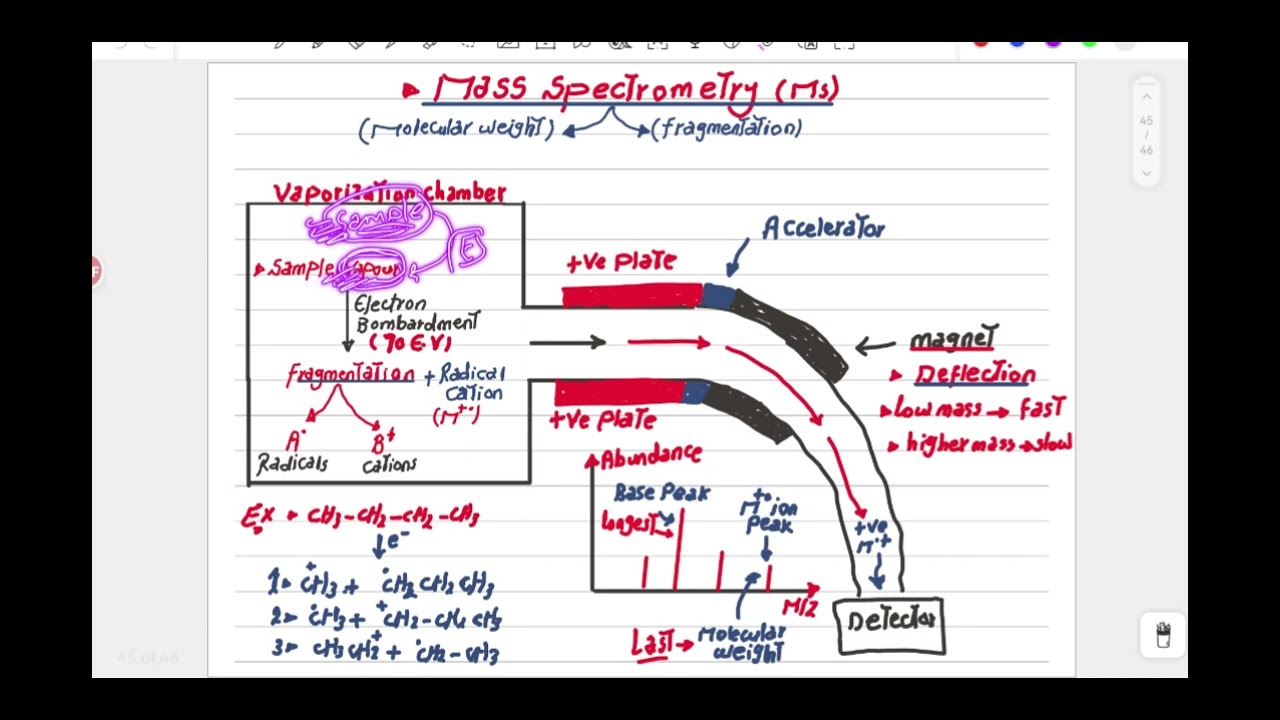 ▸ Mass Spectrometry (Ms)
(Molecular weight) (fragmentation)
Vaporization chamber
Sample
E
▸ Sample Vapour
Electron
Bombardment
(70 E.V)
fragmentation + Radical
Cation
(M+•)
A• B+
Radicals Cations
+ve Plate
Accelerator
+ve Plate
magnet
▸ Deflection
▸ low mass → fast
▸ higher mass → slow
Abundance
Base Peak
longest
M+• ion
Peak
M/Z
Last → Molecular
weight
+ve
M•+
Detector
Ex ▸ CH3-CH2-CH2-CH3
↓ e-
1▸ +CH3 + •CH2 CH2 CH3
2▸ •CH3 + +CH2-CH2 CH3
3▸ CH3CH2+ + •CH2-CH3
45
/
46
45 of 46